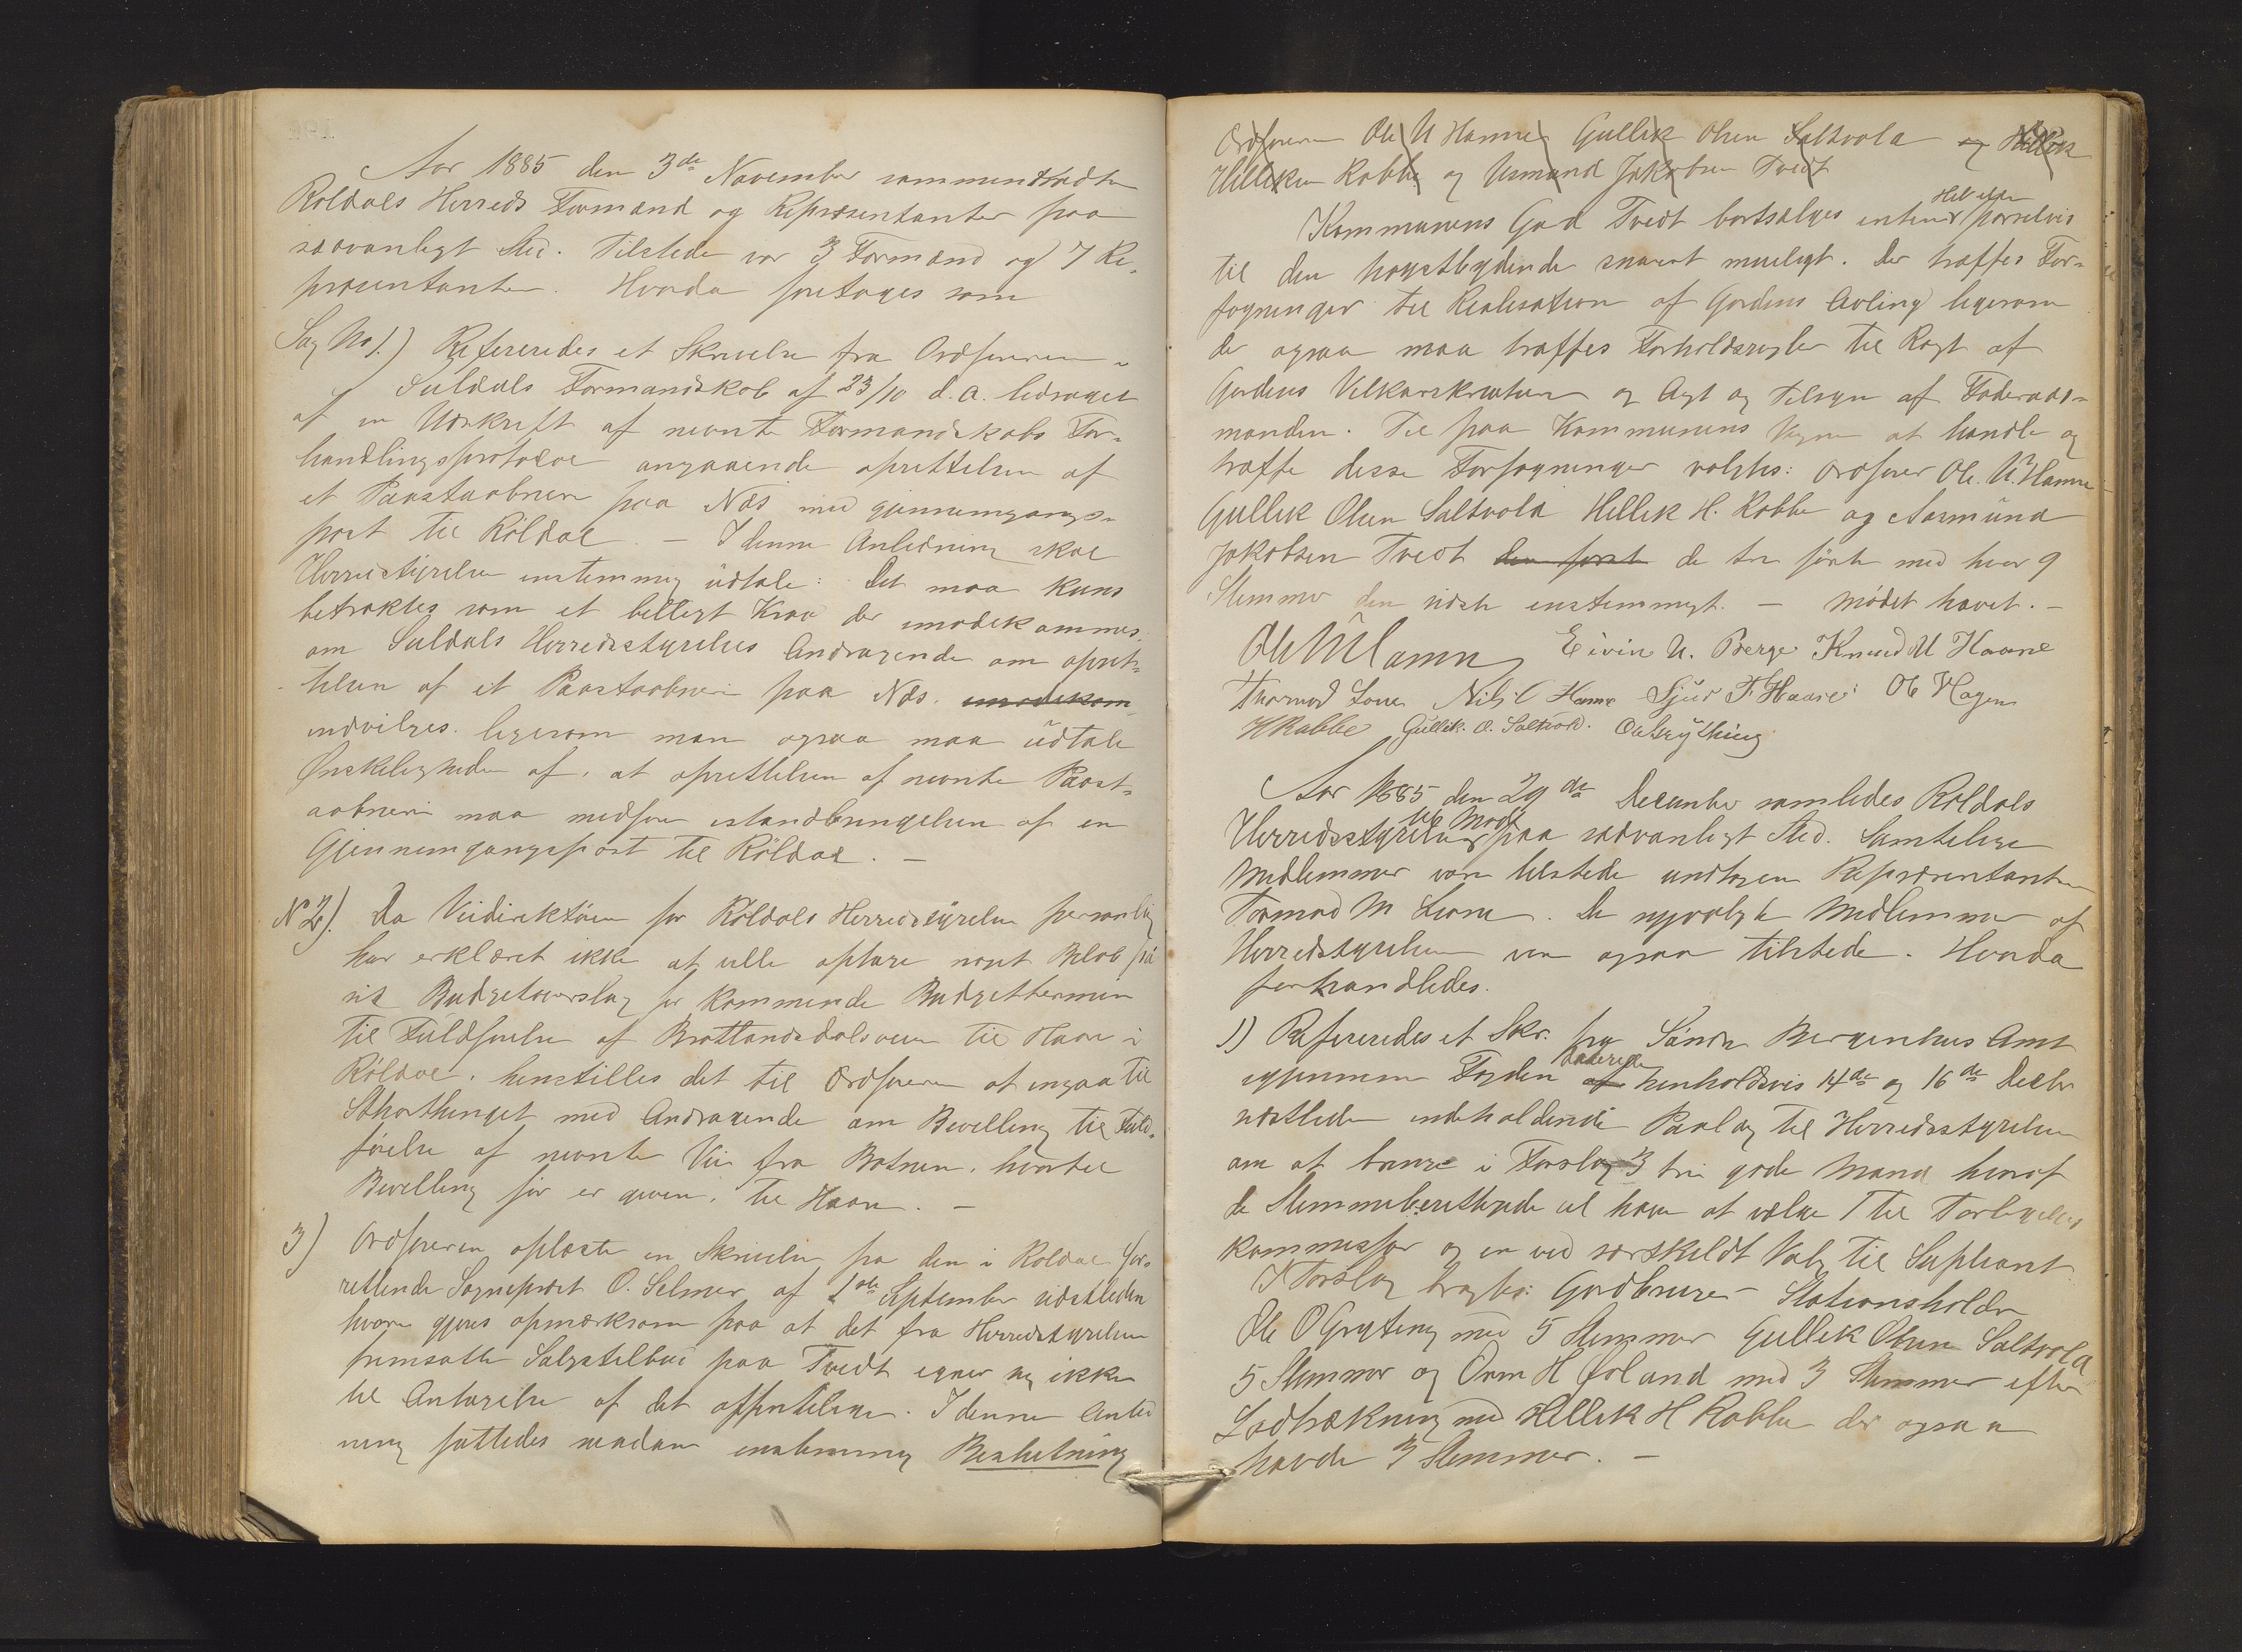 Aar 1885 den 3de November sammentraadte
Röldals Herreds Formænd og Repræsentanter paa
sædvanligt Sted. Tilstede var 3 Formænd og 7 Re-
præsentanter. Hvorda foretages som
Sag No 1.) Refereredes et Skrivelse fra Ordføreren i
Suldals Formandskab af 23/10 d. a. ledsaget
af en Udskrift af nævnte Formandskabs For-
handlingsprotocol angaaende oprettelsen af
et Paastaabneri paa Næs med gjennemgangs-
post til Röldal. – I denne Anledning skal
Herredstyrelsen enstemmig üdtale: Det maa kuns
betraktes som et billigt Krav der imødekommes
om Suldals Herredsstyrelses Andragende om opret-
telsen af et Paastaabneri paa Næs. imødekom
indvilges. ligesom man ogsaa maa üdtale
Ønskeligheden af, at oprettelsen af nævnte Paast-
aabneri maa medføre istandbringelsen af en
Gjennemgangspost til Röldal. –
N 2). Da Veidirektören for Röldals Herredsstyrelse personlig
har erklæret ikke at ville optage noget Beløb på
sit Budgetoverslag for kommende Budgettermin
til Füldførelse af Brattlandsdalsveien til Haare i
Röldal, henstilles det til Ordføreren at ingaa til
Storthinget med Andragende om Bevilling til Fuld-
förelse af nævnte Vei fra Botnen, hvortil
Bevilling för er given, til Haare. –
3) Ordføreren oplæste en Skrivelse fra den i Röldal for-
rettende Sogneprest O. Selmer af 1ste September sidstleden
hvori gjøres opmærksom paa at det fra Herredstyrelsen
fremsatte Salgstilbud paa Tvedt egner sig ikke
til Antagelse af det offentlige. I denne Anled
ning fattedes saadan enstemmig Beslutning
Ordføreren Ole U Hamre Gullik Olsen Saltvold og Hellik
Helliksen Rabbe og Asmund Jakobsen Tvedt
Kommunens Gaard Tvedt bortsælges enten Helt eller parselvis
til den høystbydende snarest mueligt. Der træffes For-
føgninger til Realisation af Gardens Avling ligesom
der ogsaa maa træffes Forholdsregler til Røgt af
Gardens Vilkarskreature og Agt og Tilsyn af Føderaads-
manden. Til paa Kommunens Vegne at handle og
træffe disse Forføgninger valgtes: Ordfører Ole U. Hamre
Gullik Olsen Saltvold Hellik H. Rabbe og Aasmund
Jakobsen Tvedt den først de tre först med hver 9
Stemmer den sidste enstemmigt. – Mødet hævet. –
Ole U Hamre Eivin U. Berge Knud U Haare
Thormod Lone Nils C Hamre Sjur T. Haare Ole Hagen
H Rabbe Gullik. O. Saltvold. O Grytting
Aar 1885 den 29de December samledes Röldals
Herredsstyrelse til Møde paa sædvanligt Sted. Samtelige
Medlemmer vare tilstede undtagen Repræsentanten
Tormod M Lone. De nyvalgte Medlemmer af
Herredsstyrelsen var ogsaa tilstede. Hvorda
forhandledes.
1) Refereredes et Skr. fra Söndre Bergenhus Amt
igjennem Fogden af dateret henholdsvis 14de og 16de Decbr
sidstleden indeholdende Paalæg til Herredsstyrelsen
om at bringe i Forslag 3 tre gode Mænd hvoraf
de Stemmeberettigede vil have at vælge 1 til Forligelses
kommissær og en ved særskildt Valg til Supleant
I Forslag bragtes: Gardbruger Stationsholder
Ole O Grytting med 5 Stemmer Gullik Olsen Saltvold
5 Stemmer og Orm H Juland med 3 Stemmer efter
Lodtrækning med Hellik H Rabbe der ogsaa
havde 3 Stemmer. –